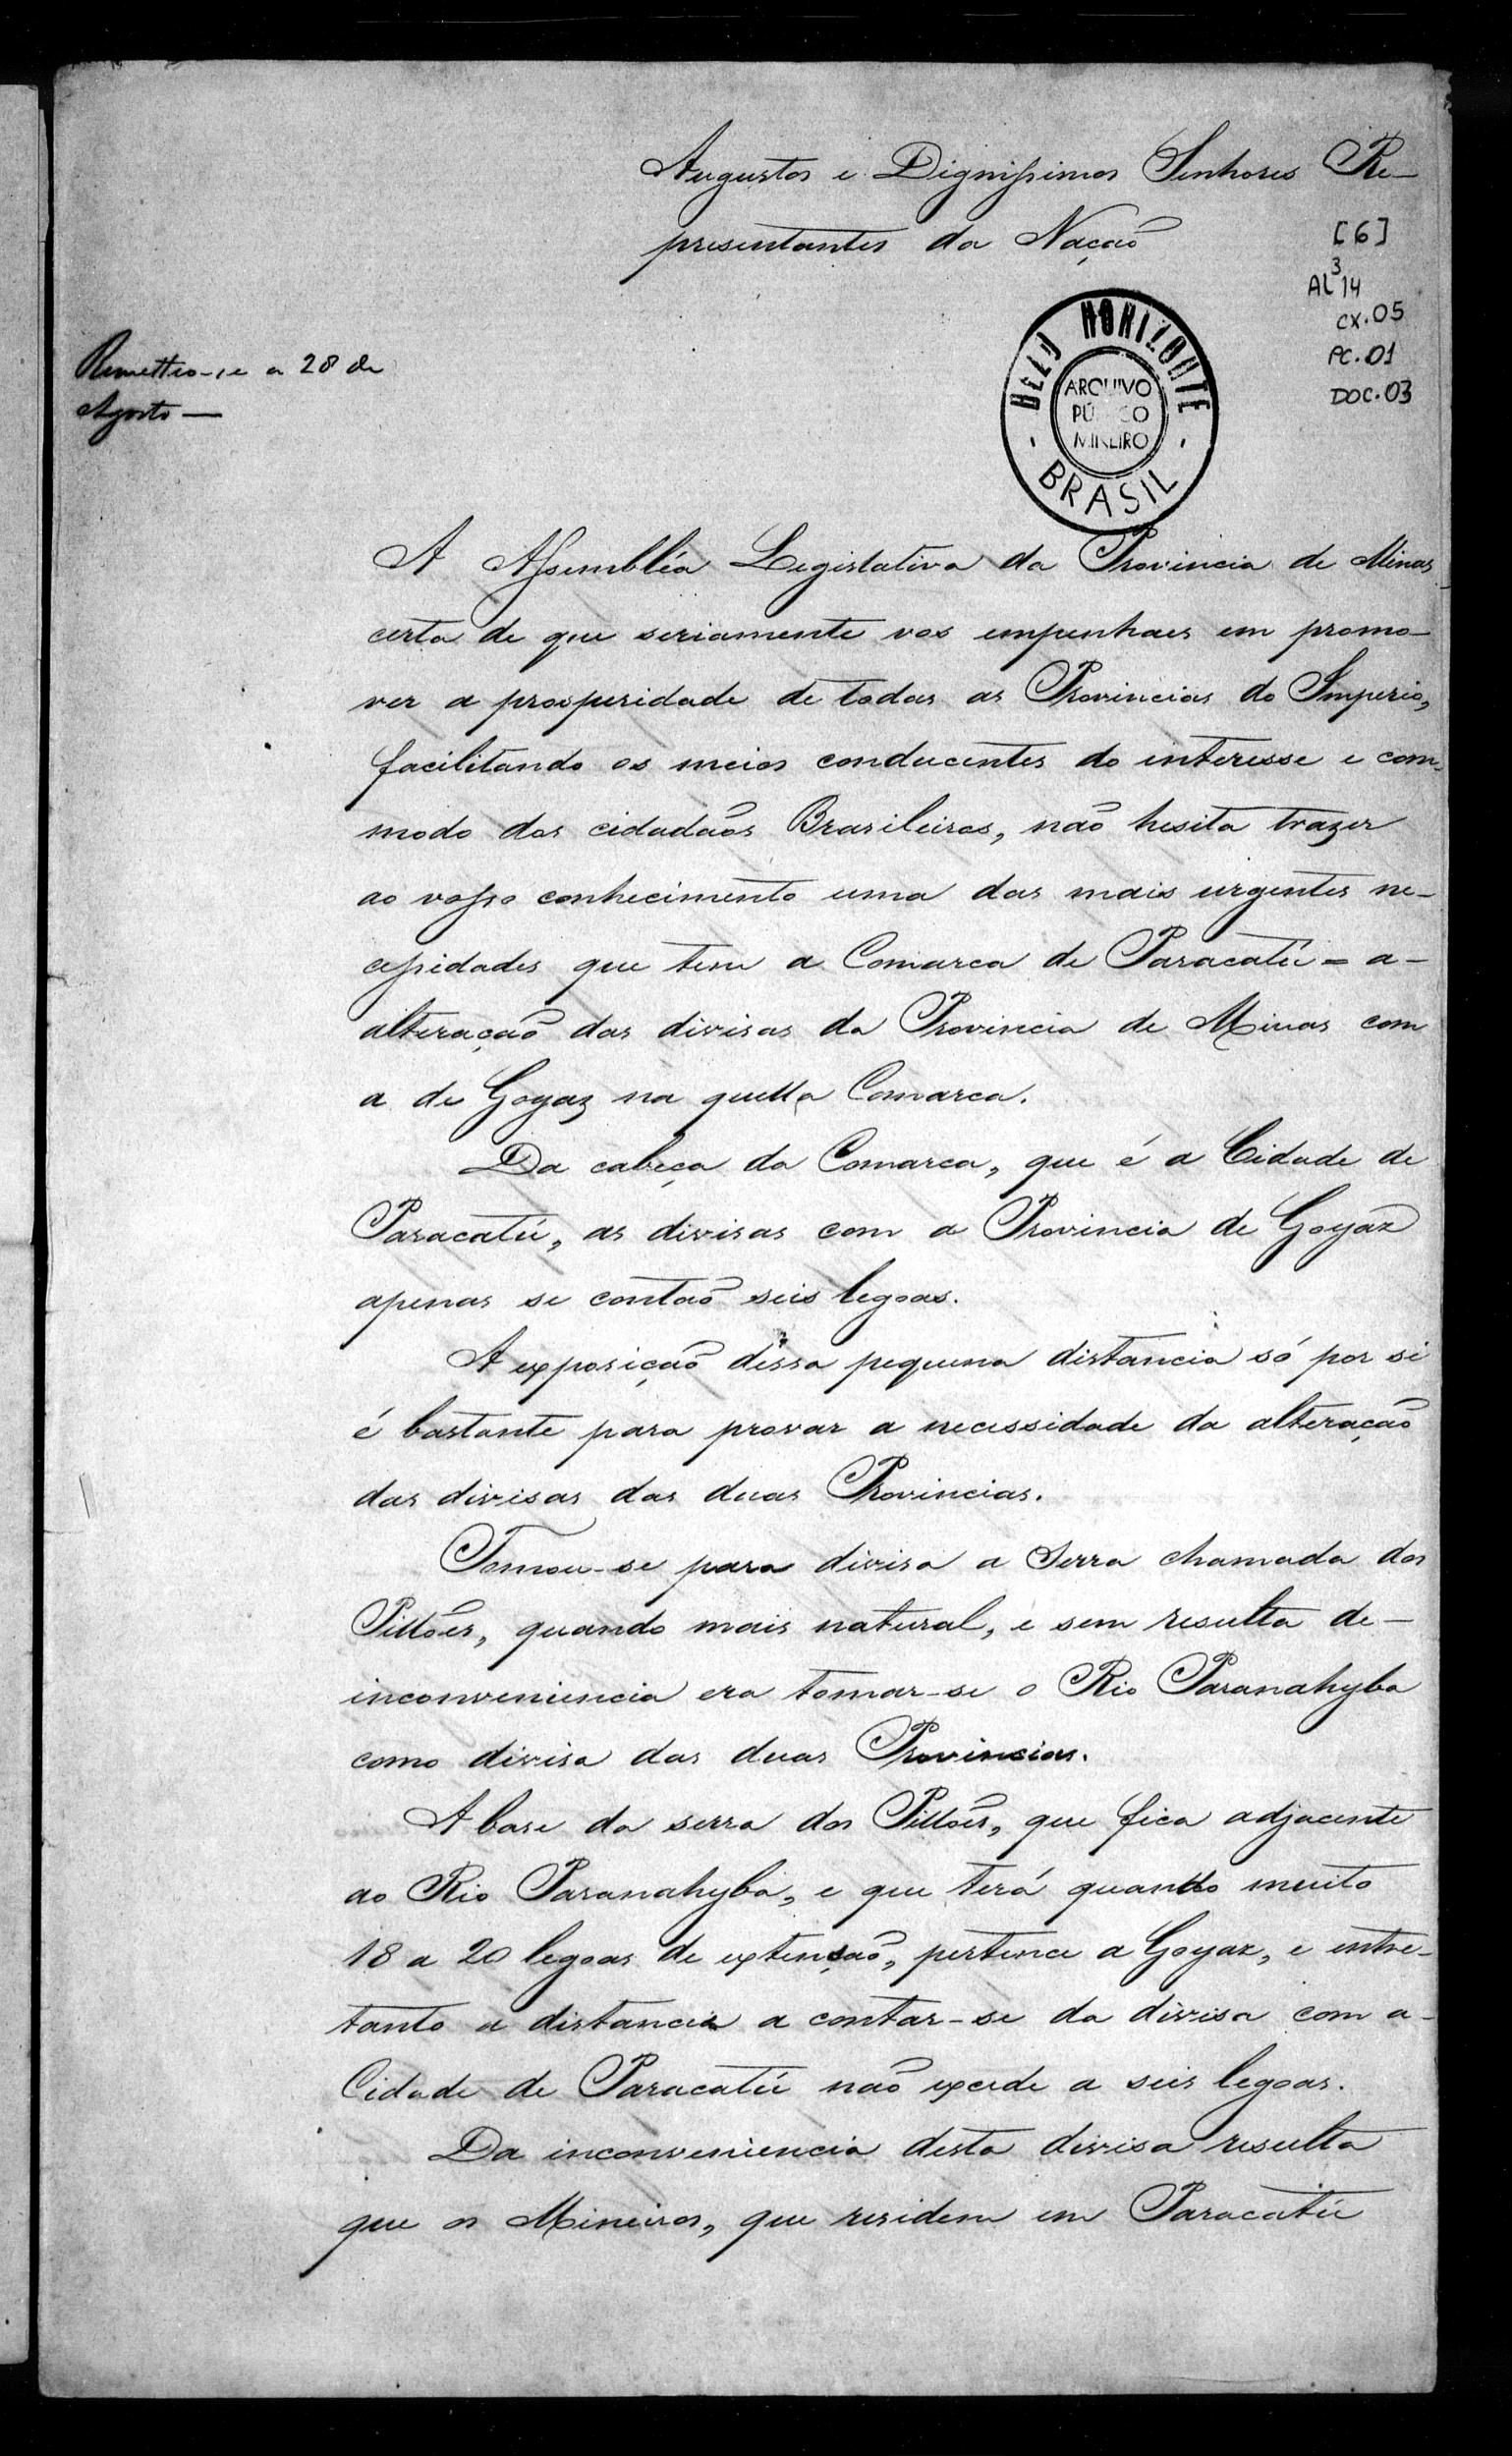 Augustos e Dignissimos Senhores Re-
presentantes da Nação
[6]
AL 3 14
CX.05
PC.01
DOC.03
Remetteo-se a 28 de
Agosto —
BELO HORIZONTE
ARQUIVO
PÚBLICO
MINEIRO
BRASIL
A Assembléa Legislativa da Provincia de Minas
certa de que seriamente vos empenhaes em promo-
ver a prosperidade de todas as Provincias do Imperio,
facilitando os meios conducentes do interesse e com-
modo dos cidadãos Brasileiros, não hesita trazer
ao vosso conhecimento uma das mais urgentes ne-
cessidades que tem a Comarca de Paracatú = a-
alteração das divisas da Provincia de Minas com
a de Goyaz na quella Comarca.
Da cabeça da Comarca, que é a Cidade de
Paracatú, as divisas com a Provincia de Goyaz
apenas se contão seis legoas.
A exposição dessa pequena distancia só por si
é bastante para provar a necessidade da alteração
das divisas das duas Provincias.
Tomou-se para divisa a Serra chamada dos
Pillões, quando mais natural, e sem resulta de-
inconveniencia era tomar-se o Rio Paranahyba
como divisa das duas Provincias.
A base da serra dos Pillões, que fica adjacente
ao Rio Paranahyba, e que terá quando muito
18 a 20 legoas de extensão, pertence a Goyaz, e entre-
tanto a distancia a contar-se da divisa com a-
Cidade de Paracatú não excede a seis legoas.
Da inconveniencia desta divisa resulta
que os Mineiros, que residem em Paracatú